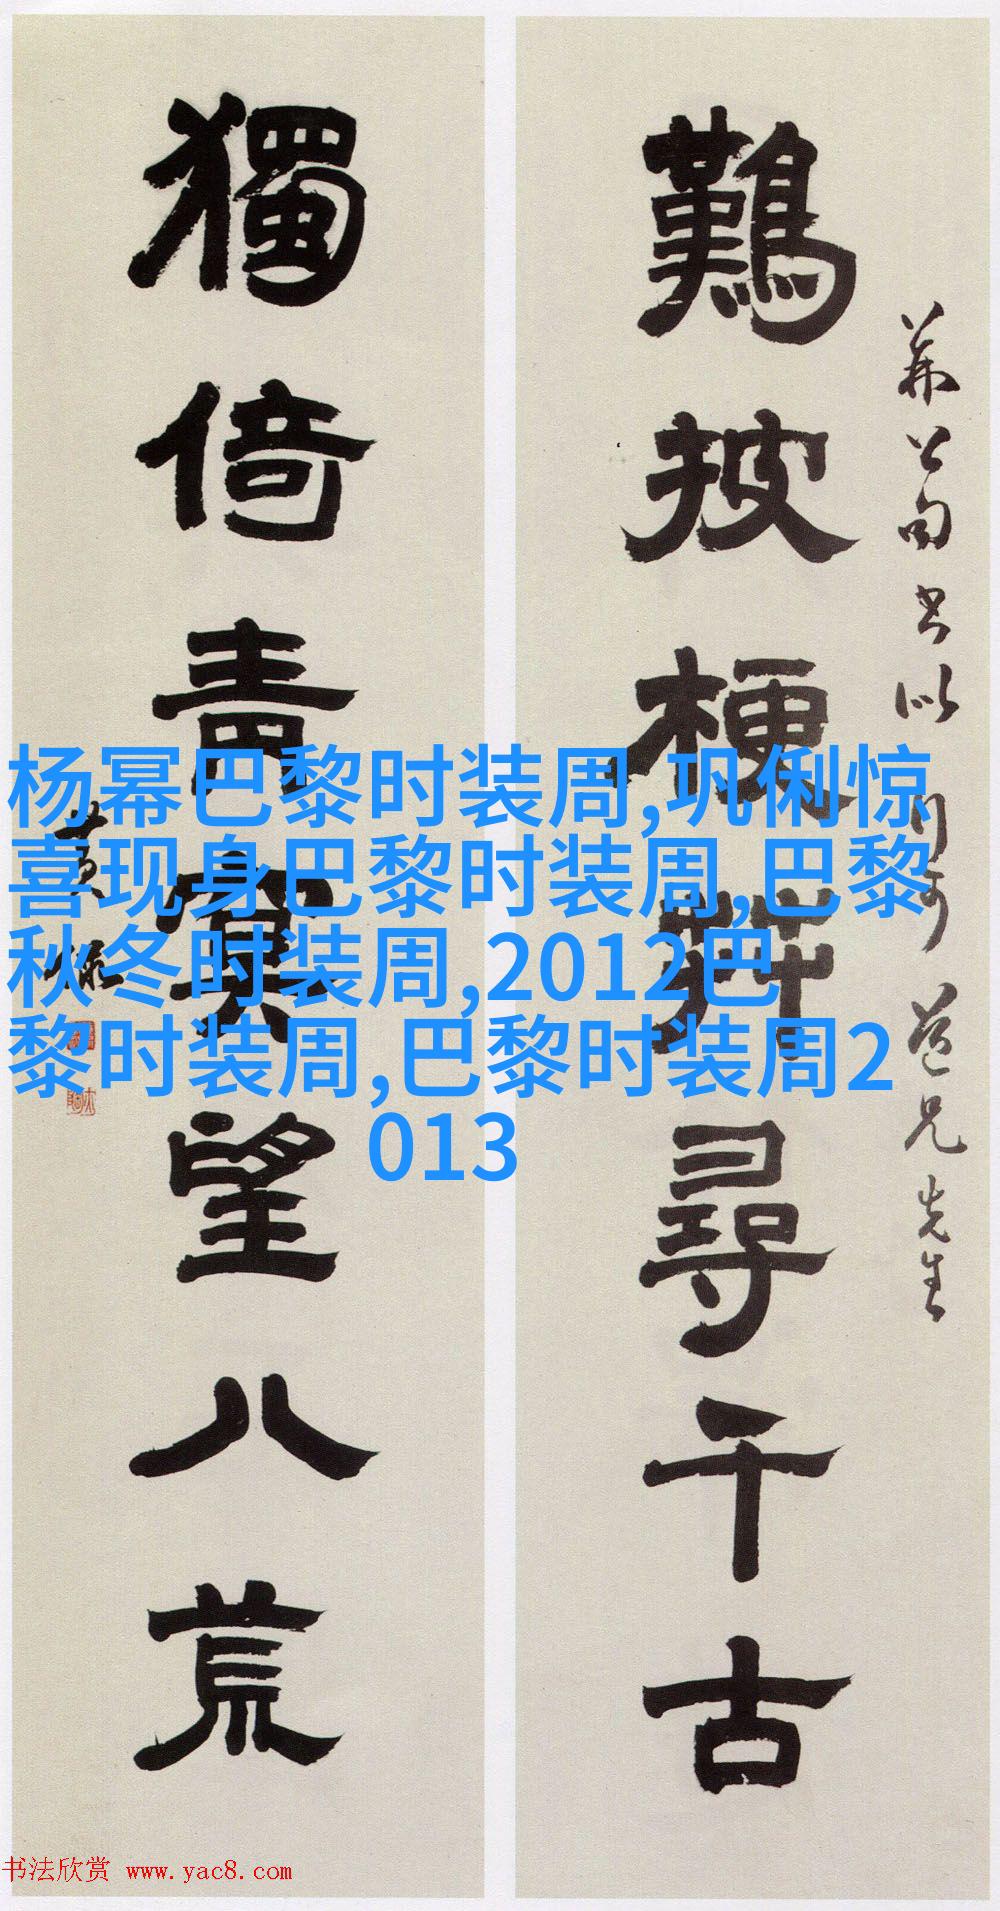 難披梗尋千古
句書以
道兄先生
獨倚青冥望八荒
杨幂巴黎时装周,巩俐惊
喜现身巴黎时装周,巴黎
秋冬时装周,2012巴
黎时装周,巴黎时装周2
013
书法欣赏 www.yac8.com